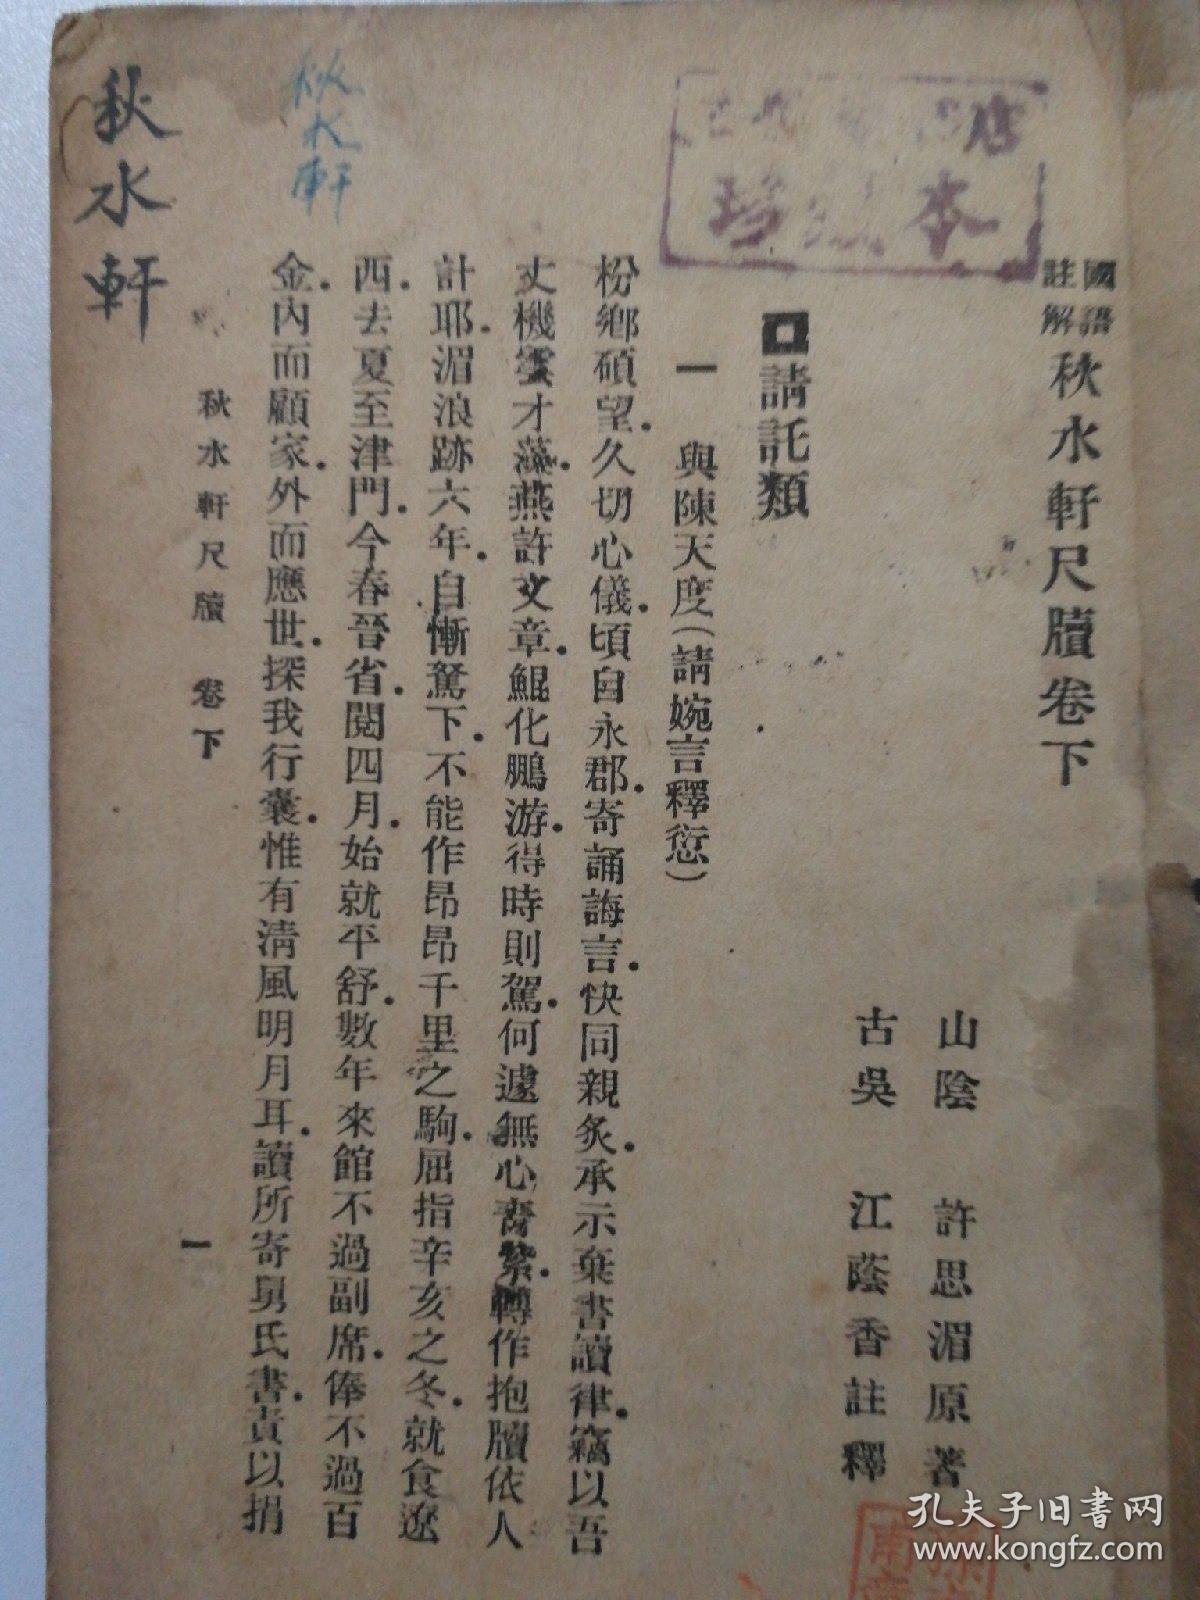 國語註解 秋水軒尺牘卷下
山陰 許思湄原著
古吳 江蔭香註釋
請託類
一 與陳天度(請婉言釋愆)
枌鄉碩望.久切心儀.頃自永郡.寄誦誨言.快同親炙.承示棄書讀律.竊以吾
丈機雲才藻.燕許文章.鯤化鵬游.得時則駕.何遽無心青紫.轉作抱牘依人
計耶.湄浪跡六年.自慚駑下.不能作昂昂千里之駒.屈指辛亥之冬.就食遼
西.去夏至津門.今春晉省.閱四月.始就平舒.數年來館不過副席.俸不過百
金.內而顧家.外而應世.探我行囊.惟有清風明月耳.讀所寄舅氏書.責以捐
秋水軒尺牘 卷下
一
秋水軒
秋水軒
店
珍 本
孔夫子旧书网
www.kongfz.com